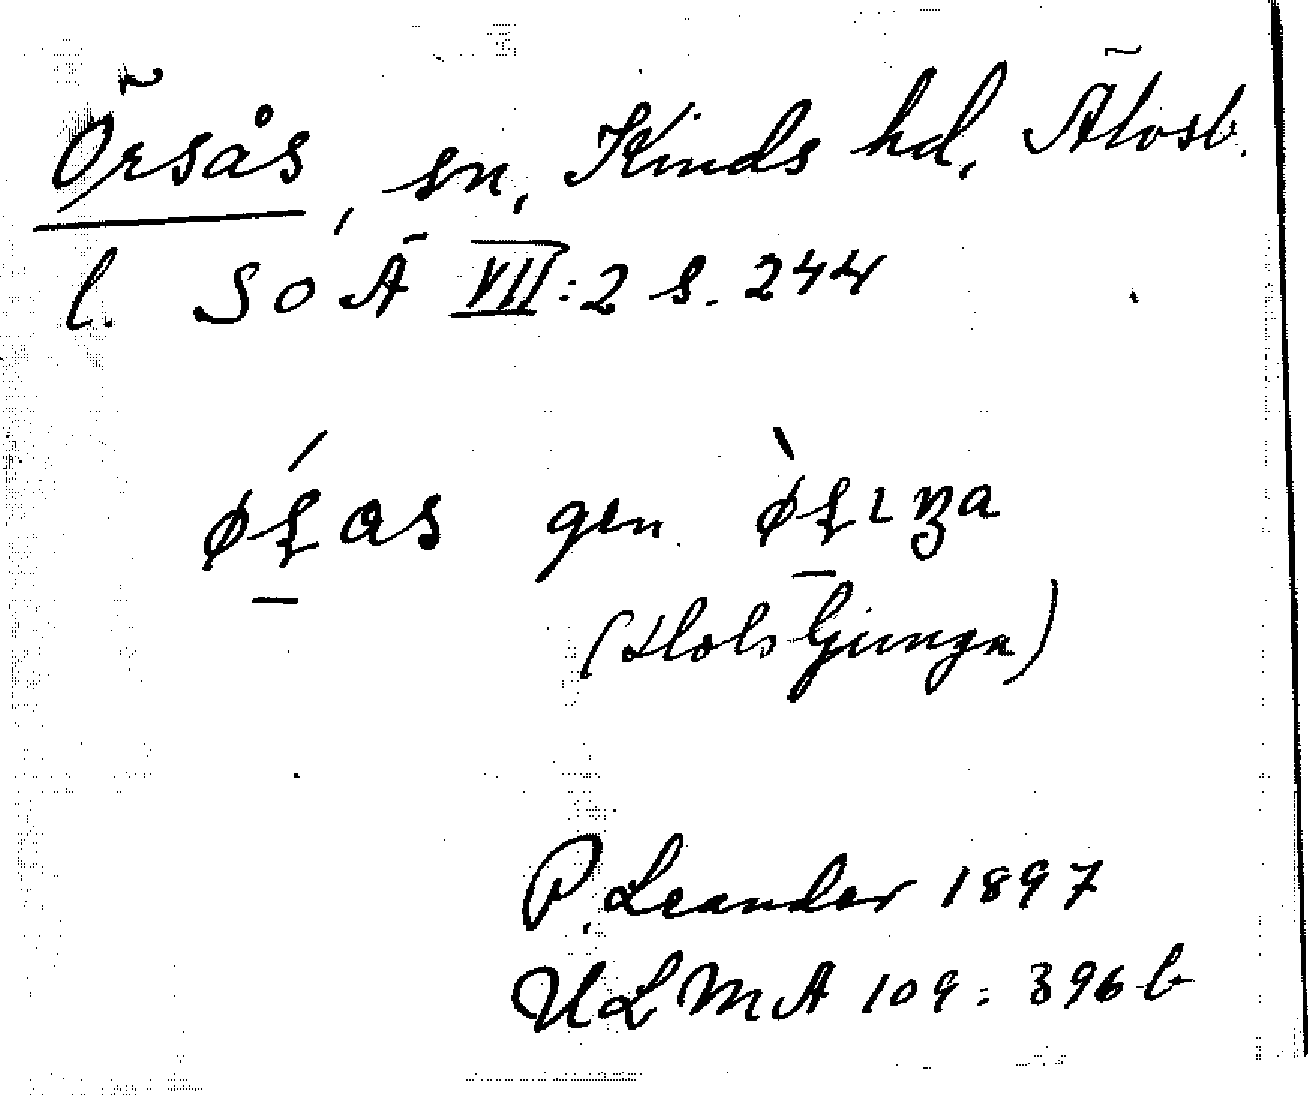 Örsås, sn, Kinds hd, Älvsb.
l. SOÄ VII:2 s. 244
gen.
(Hols Ljunga)
P. Leander 1897
ULMA 109: 396 b